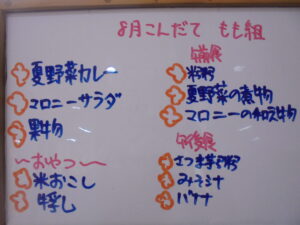 8月こんだて もも組
夏野菜カレー
マロニーサラダ
果物
〜おやつ〜
米おこし
牛乳
午前食
米粥
夏野菜の煮物
マロニーの和え物
午後食
さつま芋粥
みそ汁
バナナ